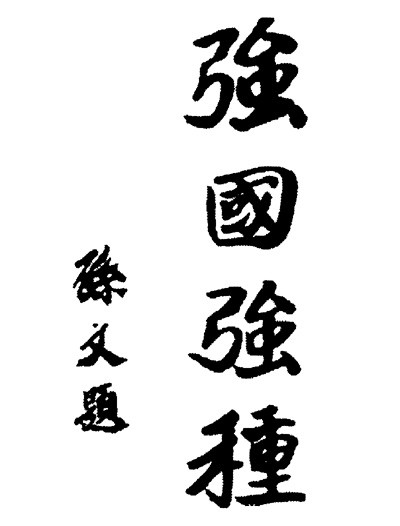 強國強種
孫文題